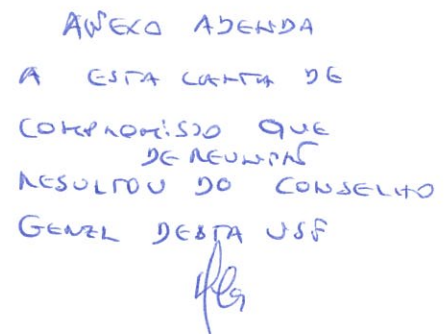 ANEXO ADENDA
A ESTA CARTA DE
COMPROMISSO QUE
DE REUNIÃO
RESULTOU DO CONSELHO
GERAL DESTA USF